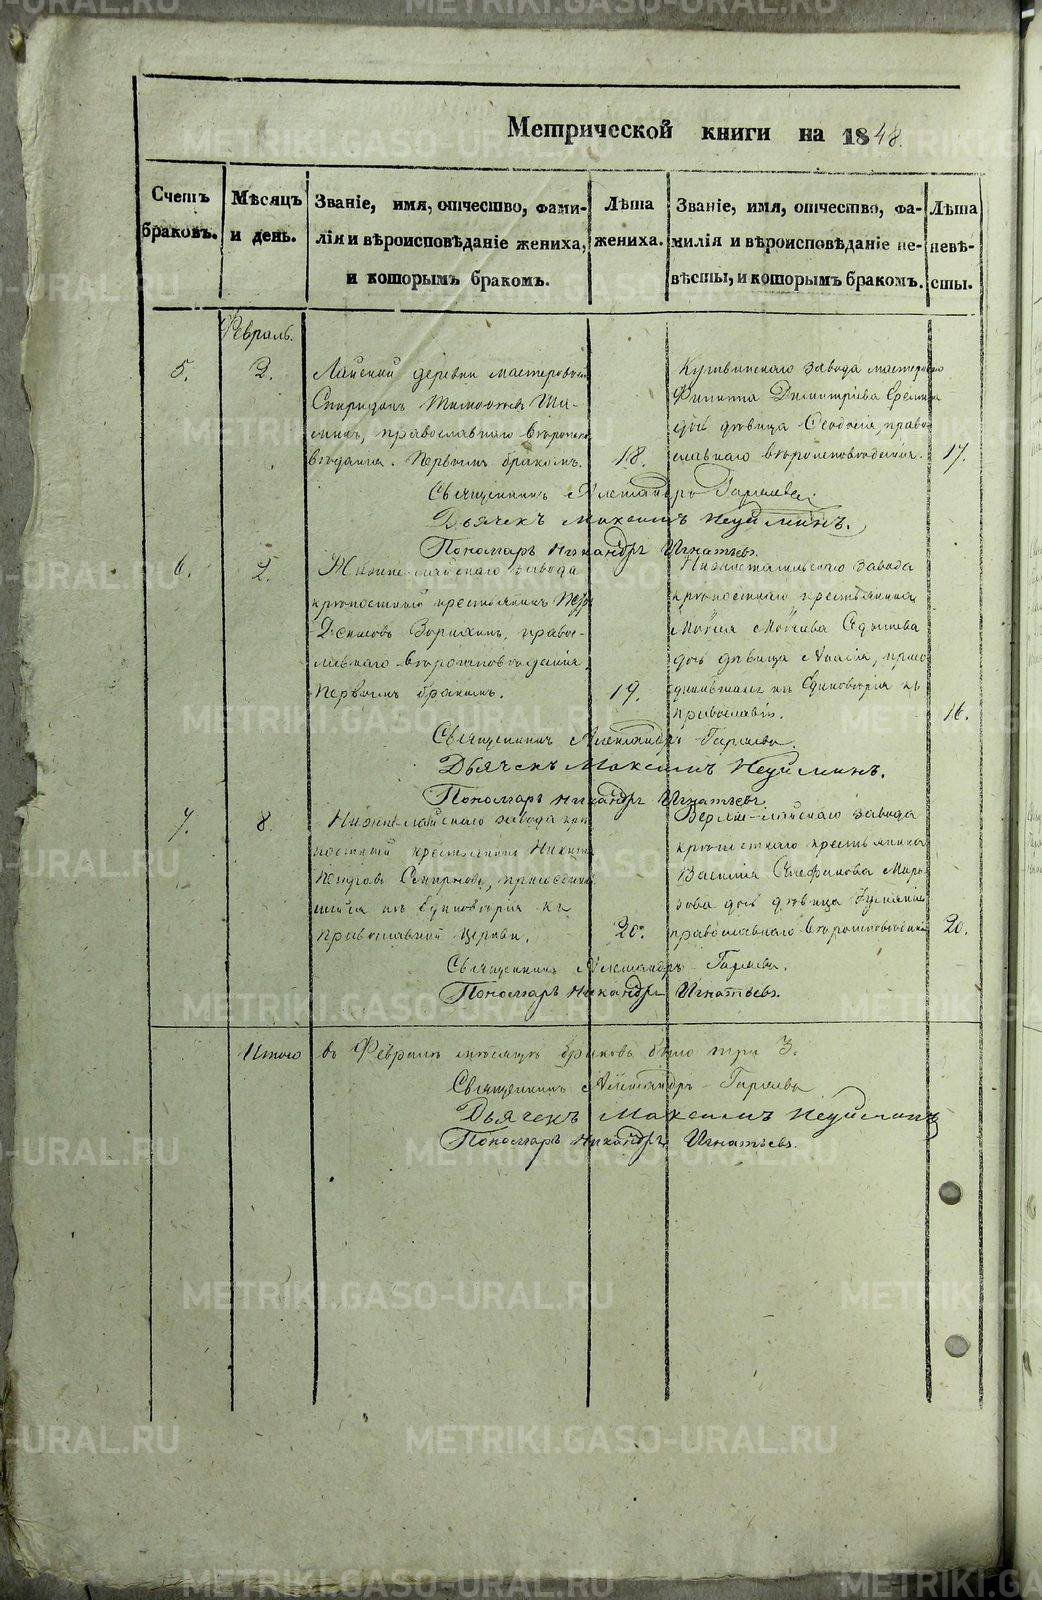 Метрической книги на 1848.
Счетъ браковъ.
Мѣсяцъ и день.
Званіе, имя, отчество, фами-
лія и вѣроисповѣданіе жениха,
и которымъ бракомъ.
Лѣта
жениха.
Званіе, имя, отчество, фа-
милія и вѣроисповѣданіе не-
вѣсты, и которымъ бракомъ.
Лѣта
невѣ-
сты.
Февраль.
5.
2.
Лайской деревни мастеровый
Спиридонъ Тимофѣевъ Ши-
православнаго вѣроиспо-
вѣданія. Первымъ бракомъ.
18.
Кушвинскаго завода мастероваго
Филиппа Димитріева
дочь дѣвица Ѳеодосія, право-
славнаго вѣроисповѣданія.
17.
Священникъ Александръ
Дьячекъ Максимъ Неуйминъ.
Пономарь Никандръ Игнатьевъ.
6.
2.
Нижнелайскаго завода
крѣпостный крестьянинъ
Денисовъ правос-
лавнаго вѣроисповѣданія,
Первымъ бракомъ.
19.
Нижнетагильскаго завода
крѣпостнаго крестьянина
дочь дѣвица присо-
единившаяся изъ Единовѣрія къ
православію.
16.
Священникъ Александръ
Дьячекъ Максимъ Неуйминъ.
Пономарь Никандръ Игнатьевъ
7.
8.
Нижнелайскаго завода крѣ-
постный крестьянинъ Никита
Петровъ Смирновъ, присоедини-
шійся изъ Единовѣрія къ
Православной Церкви.
20.
Верхнелайскаго завода
крѣпостнаго крестьянина
Василія Стефанова Моро-
зова дочь дѣвица
православнаго вѣроисповѣданія
20.
Священникъ Александръ
Пономарь Никандръ Игнатьевъ.
Итого въ Февралѣ мѣсяцѣ браковъ было три 3.
Священникъ Александръ
Дьячекъ Максимъ Неуйминъ
Пономарь Никандръ Игнатьевъ.
METRIKI.GASO-URAL.RU